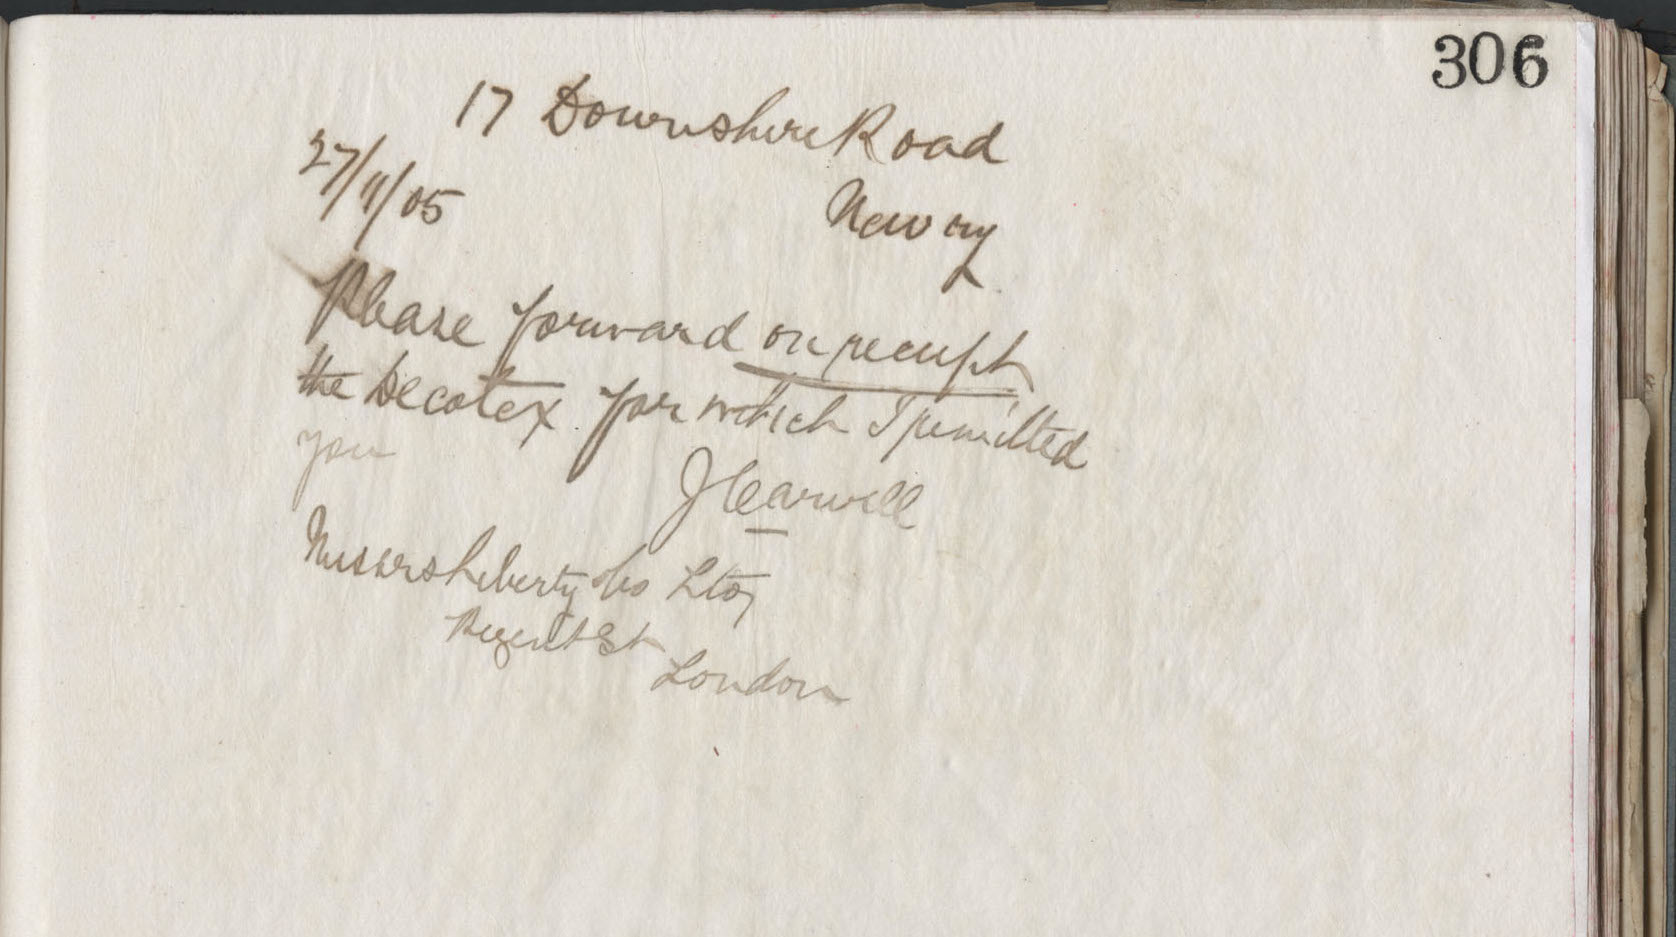 306
17 Downshire Road
27/11/05
Newry
Please forward on receipt
the Decotex for which I remitted
you
J Carvill
Messrs Liberty Co Ltd
Regent St
London